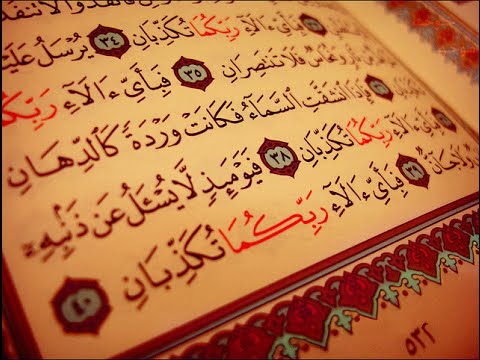 لَا تَنفُذُ
فَبِأَىِّ ءَالَآءِ رَبِّكُمَا تُكَذِّبَانِ ٣٤ يُرْسَلُ عَلَيْ
نَّارٍ وَنُحَاسٌ فَلَا تَنتَصِرَانِ ٣٥ فَبِأَىِّ ءَالَآءِ رَبِّكُمَا
فَإِذَا ٱنشَقَّتِ ٱلسَّمَآءُ فَكَانَتْ وَرْدَةً كَٱلدِّهَانِ
فَبِأَىِّ ءَالَآءِ رَبِّكُمَا تُكَذِّبَانِ ٣٨ فَيَوْمَئِذٍ لَّا يُسْـَٔلُ عَن ذَنۢبِهِۦٓ
وَلَا جَآنٌّ ٣٩ فَبِأَىِّ ءَالَآءِ رَبِّكُمَا تُكَذِّبَانِ ٤٠
٥٣٢